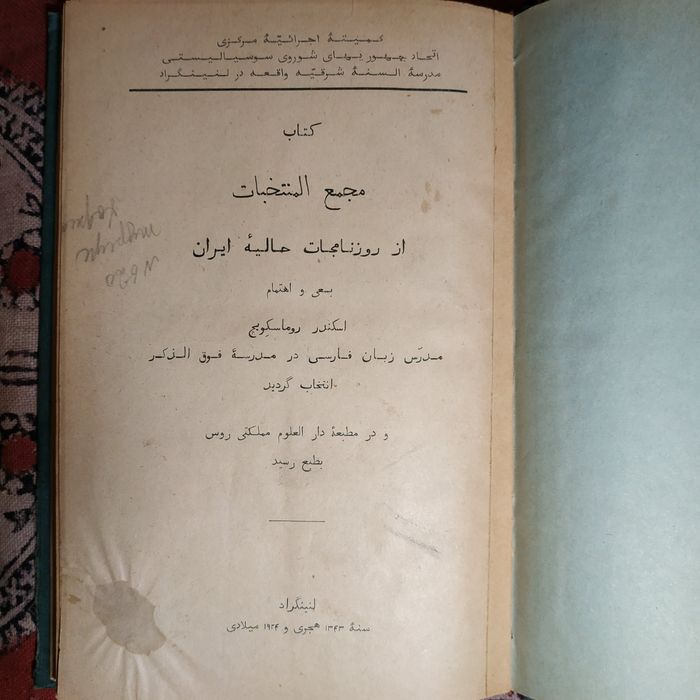 کمیتهٔ اجرائیّهٔ مرکزی
اتحاد جمهوریهای شوروی سوسیالیستی
مدرسهٔ السنهٔ شرقیّه واقعه در لنینگراد
کتاب
مجمع المنتخبات
از روزنامجات حالیهٔ ایران
بسعی و اهتمام
اسکندر روماسکویچ
مدرّس زبان فارسی در مدرسهٔ فوق الذکر
انتخاب گردید
و در مطبعهٔ دار العلوم مملکتی روس
بطبع رسید
لنینگراد
سنهٔ ۱۳۴۳ هجری و ۱۹۲۴ میلادی